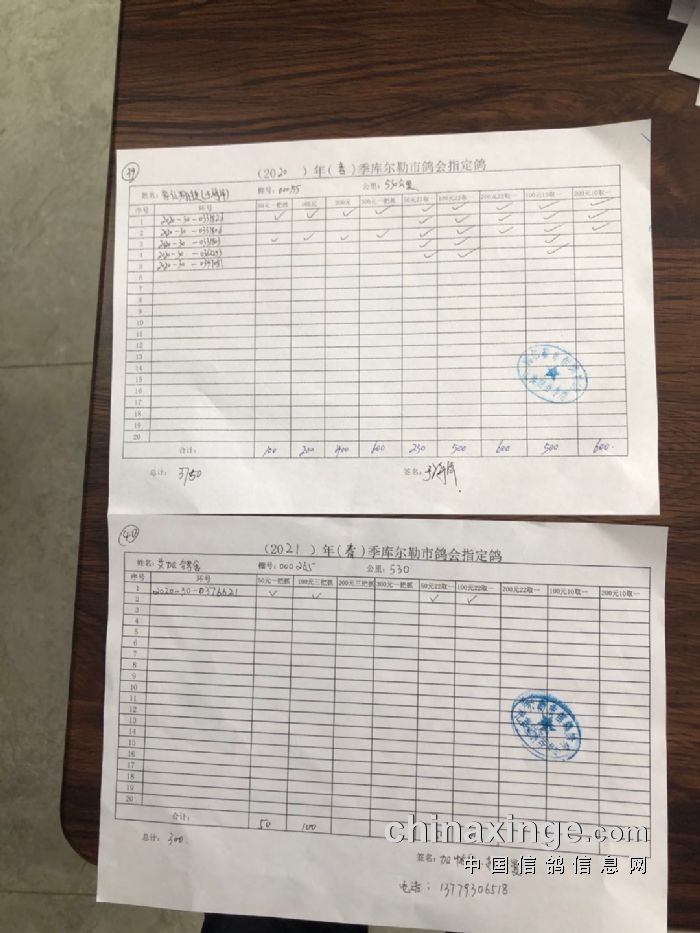 39
(2020 ) 年 (春) 季库尔勒市鸽会指定鸽
姓名: 棚号: 00055 公里: 530公里
序号 环号 50元一把抓 100元 200元 300元一把抓 50元22取一 100元22取一 200元22取一 100元10取一 200元10取一
1 2020-30-
2 2020-30-
3 2020-30-
4 2020-30-
5 2020-30-
6
7
8
9
10
11
12
13
14
15
16
17
18
19
20
合计: 100 200 400 600 250 500 600 500 600
总计: 3750 签名:
40
(2021 ) 年 (春) 季库尔勒市鸽会指定鸽
姓名: 艾加 鸽舍 棚号: 000265 公里: 530
序号 环号 50元一把抓 100元三把抓 200元三把抓 300元一把抓 50元22取一 100元22取一 200元22取一 100元10取一 200元10取一
1 2020-30-0376621 ✓ ✓ ✓ ✓
2
3
4
5
6
7
8
9
10
11
12
13
14
15
16
17
18
19
20
合计: 50 100
总计: 300
签名: 加
电话: 13779306518
chinaxinge.com
中国信鸽信息网